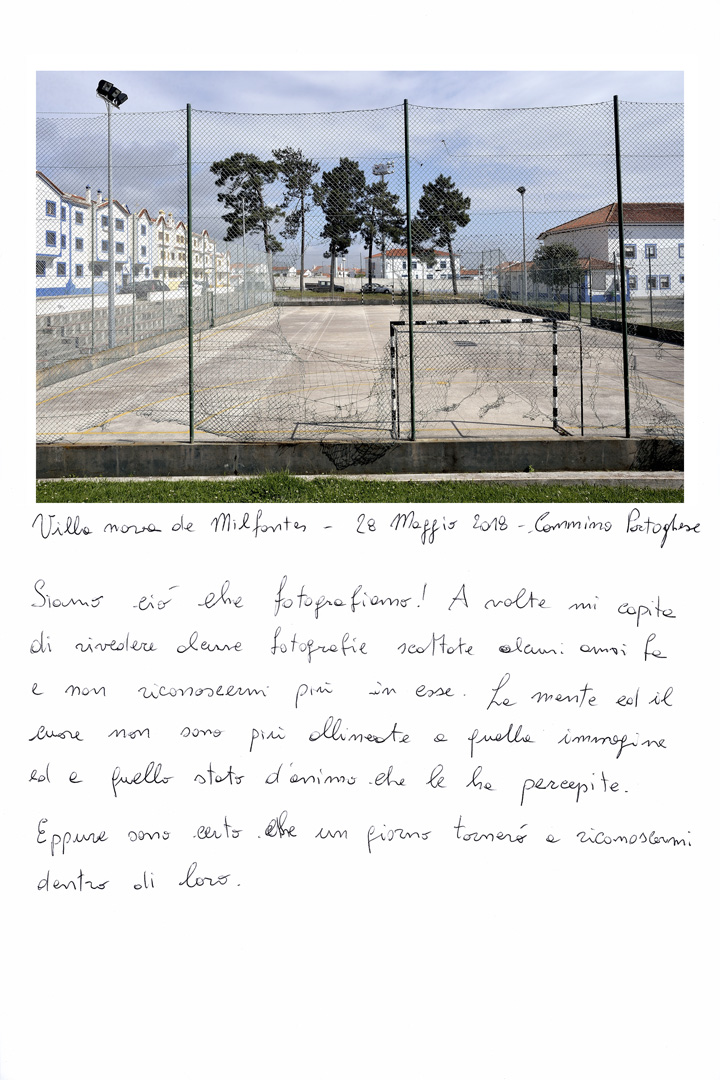 Villa nova de Milfontes - 28 Maggio 2018 - Cammino Portoghese
Siamo ciò che fotografiamo! A volte mi capita
di rivedere alcune fotografie scattate alcuni anni fa
e non riconoscermi più in esse. La mente ed il
cuore non sono più allineate a quella immagine
ed a quello stato d'animo che le ha percepite.
Eppure sono certo che un giorno tornerò a riconoscermi
dentro di loro.